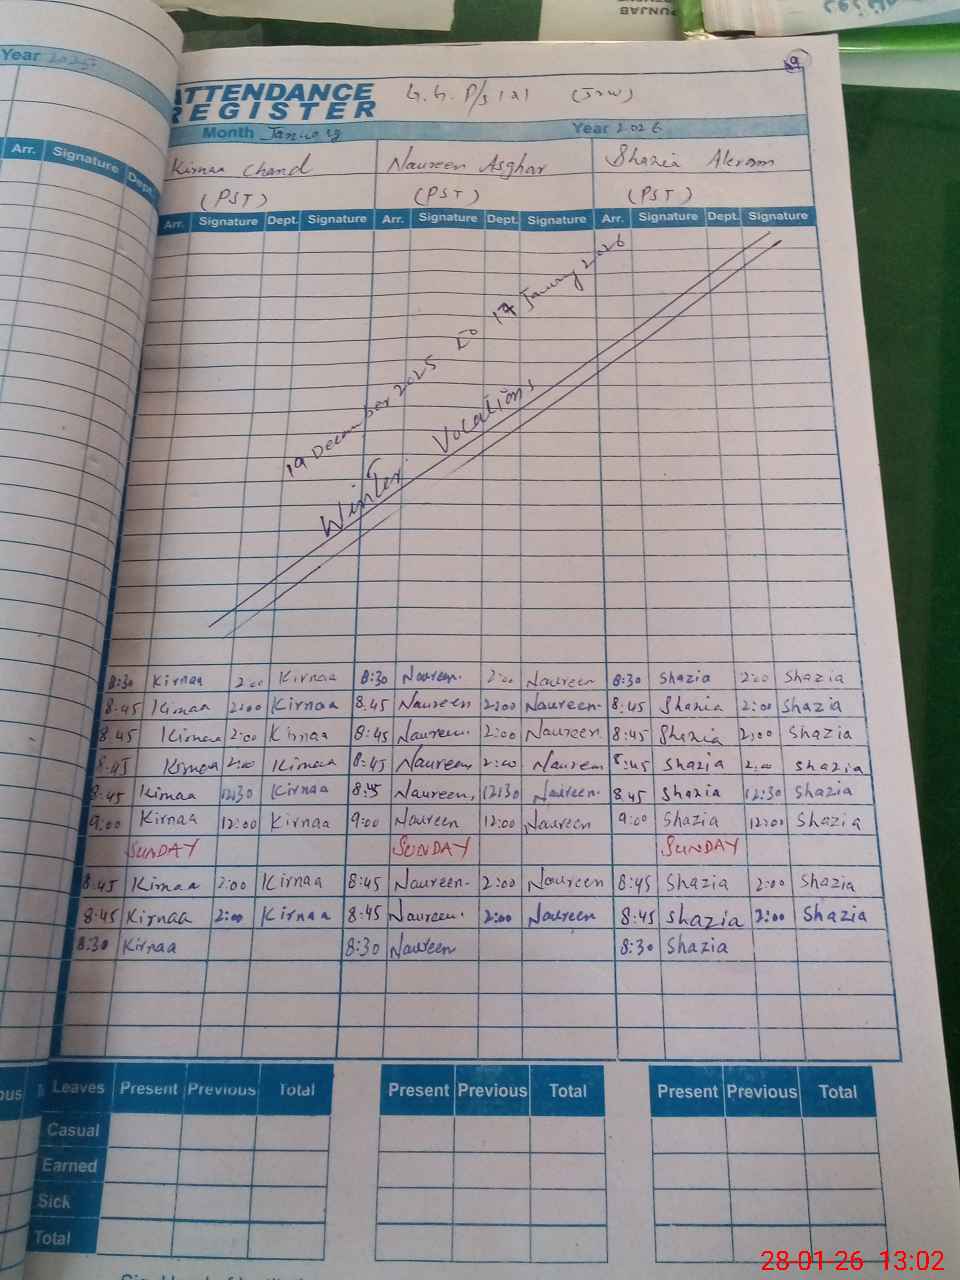 PUNJAB
Year 2025
ATTENDANCE
REGISTER
Month
Year 2026
Arr. Signature Dept.
Kirnaa Chand Naureen Asghar Shazia Akram
(PST) (PST) (PST)
Arr. Signature Dept. Signature Arr. Signature Dept. Signature Arr. Signature Dept. Signature
19 December 2025 to 19 January 2026
Winter Vocations
8:30 Kirnaa 2:00 Kirnaa 8:30 Naureen. 2:00 Naureen 8:30 Shazia 2:00 Shazia
8:45 Kirnaa 2:00 Kirnaa 8:45 Naureen 2:00 Naureen. 8:45 Shazia 2:00 Shazia
8:45 Kirnaa 2:00 Kirnaa 8:45 Naureen. 2:00 Naureen. 8:45 Shazia 2:00 Shazia
8:45 Kirnaa 2:00 Kirnaa 8:45 Naureen 2:00 Naureen 8:45 Shazia 2:00 Shazia
8:45 Kirnaa 12:30 Kirnaa 8:45 Naureen. 12:30 Naureen. 8:45 Shazia 12:30 Shazia
9:00 Kirnaa 12:00 Kirnaa 9:00 Naureen 12:00 Naureen 9:00 Shazia 12:00 Shazia
SUNDAY SUNDAY SUNDAY
8:45 Kirnaa 2:00 Kirnaa 8:45 Naureen. 2:00 Naureen 8:45 Shazia 2:00 Shazia
8:45 Kirnaa 2:00 Kirnaa 8:45 Naureen. 2:00 Naureen 8:45 Shazia 2:00 Shazia
8:30 Kirnaa 8:30 Naureen 8:30 Shazia
Leaves Present Previous Total Present Previous Total Present Previous Total
Casual
Earned
Sick
Total
28-01-26 13:02